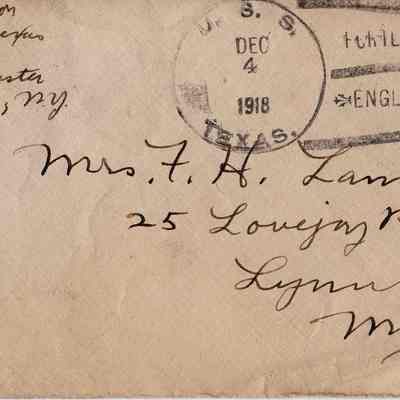 on
Texas
ester
, N.Y.
U. S. S.
DEC
4
1918
TEXAS.
ENGL
Mrs. F. H. Lan
25 Lovejoy
Lynn
M